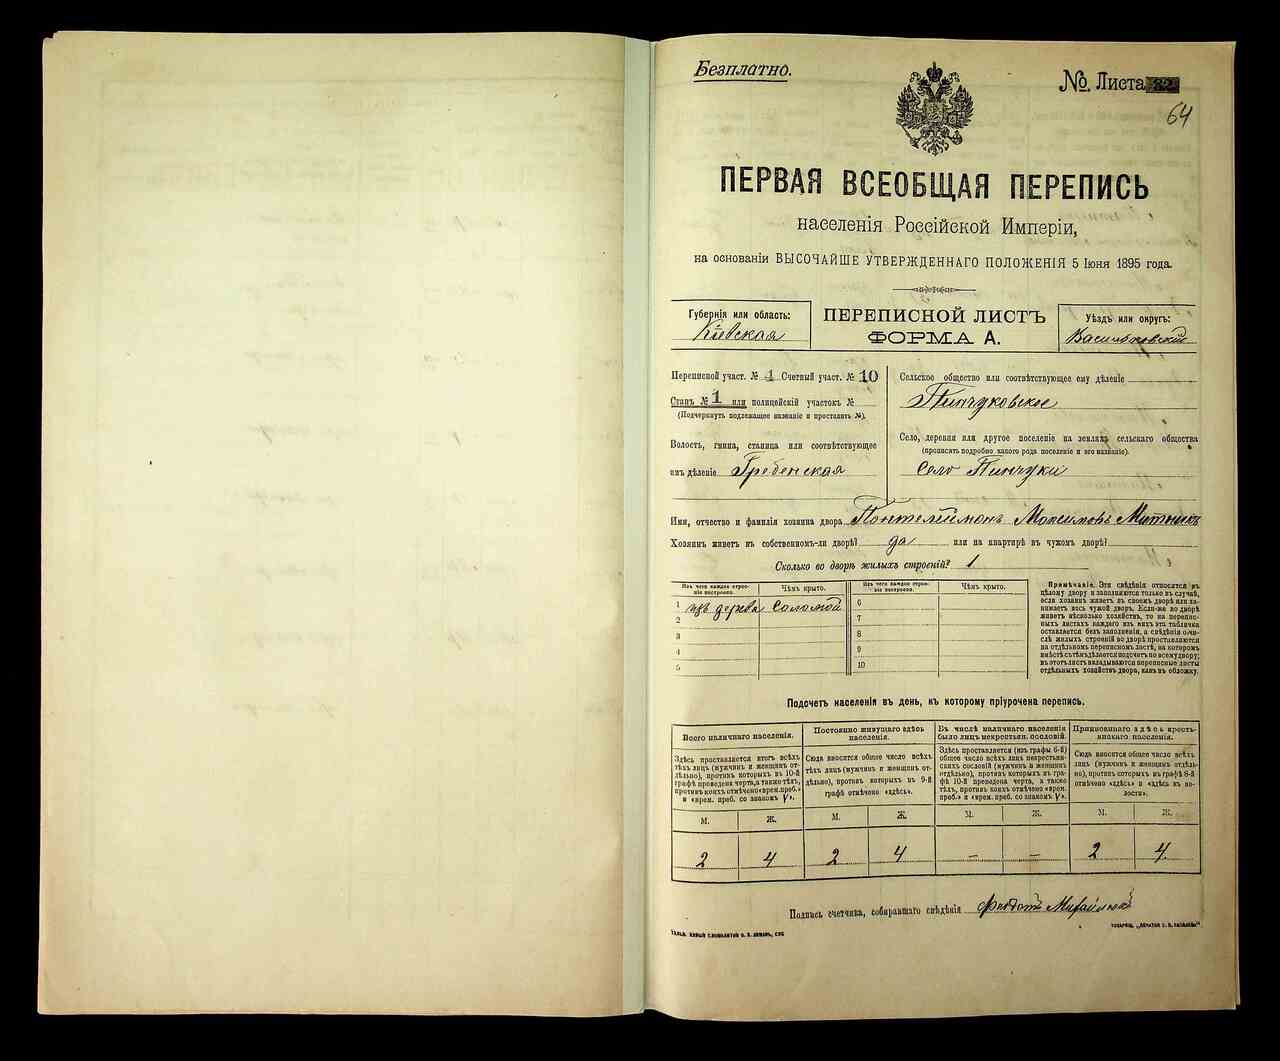 Безплатно.
№ Листа 32
64
ПЕРВАЯ ВСЕОБЩАЯ ПЕРЕПИСЬ
населенія Россійской Имперіи,
на основаніи ВЫСОЧАЙШЕ УТВЕРЖДЕННАГО ПОЛОЖЕНІЯ 5 Іюня 1895 года.
Губернія или область:
Кіевская
ПЕРЕПИСНОЙ ЛИСТЪ
ФОРМА А.
Уѣздъ или округъ:
Васильковскій
Переписной участ. № 1 Счетный участ. № 10
Станъ № 1 или полицейскій участокъ №
(Подчеркнуть подлежащее названіе и проставить №).
Волость, гмина, станица или соотвѣтствующее
имъ дѣленіе Гребенская
Сельское общество или соотвѣтствующее ему дѣленіе
Пинчуковское
Село, деревня или другое поселеніе на земляхъ сельскаго общества
(прописать подробно какого рода поселеніе и его названіе).
Село Пинчуки
Имя, отчество и фамилія хозяина двора Пантелеймонъ Максимовъ Митникъ
Хозяинъ живетъ въ собственномъ-ли дворѣ? да или на квартирѣ въ чужомъ дворѣ?
Сколько во дворѣ жилыхъ строеній? 1
Изъ чего каждое строеніе построено.
Чѣмъ крыто.
Изъ чего каждое строеніе построено.
Чѣмъ крыто.
1 изъ дерева соломой 6
2 7
3 8
4 9
5 10
Примѣчаніе. Эти свѣдѣнія относятся къ
цѣлому двору и заполняются только въ случаѣ,
если хозяинъ живетъ въ своемъ дворѣ или за-
нимаетъ весь чужой дворъ. Если-же во дворѣ
живетъ нѣсколько хозяйствъ, то на перепис-
ныхъ листахъ каждаго изъ нихъ эта табличка
оставляется безъ заполненія, а свѣдѣнія о чи-
слѣ жилыхъ строеній во дворѣ проставляются
на отдѣльномъ переписномъ листѣ, на которомъ
вмѣстѣ съ тѣмъ дѣлается подсчетъ по всему двору;
въ этотъ листъ вкладываются переписные листы
отдѣльныхъ хозяйствъ двора, какъ въ обложку.
Подсчетъ населенія въ день, къ которому пріурочена перепись.
Всего наличнаго населенія.
Постоянно живущаго здѣсь
населенія.
Въ числѣ наличнаго населенія
было лицъ некрестьян. сословій.
Приписаннаго здѣсь кресть-
янскаго населенія.
Здѣсь проставляется итогъ всѣхъ
тѣхъ лицъ (мужчинъ и женщинъ от-
дѣльно), противъ которыхъ въ 10-й
графѣ проведена черта, а также тѣхъ,
противъ коихъ отмѣчено «врем. преб.»
и «врем. преб. со знакомъ V».
Сюда вносится общее число всѣхъ
тѣхъ лицъ (мужчинъ и женщинъ от-
дѣльно), противъ которыхъ въ 9-й
графѣ отмѣчено «здѣсь».
Здѣсь проставляется (изъ графы 6-й)
общее число всѣхъ лицъ некрестьян-
скихъ сословій (мужчинъ и женщинъ
отдѣльно), противъ которыхъ въ гра-
фѣ 10-й проведена черта, а также
тѣхъ, противъ коихъ отмѣчено «врем.
преб.» и «врем. преб. со знакомъ V».
Сюда вносится общее число всѣхъ
лицъ (мужчинъ и женщинъ отдѣль-
но), противъ которыхъ въ графѣ 8-й
отмѣчено «здѣсь» и «здѣсь въ во-
лости».
М. Ж. М. Ж. М. Ж. М. Ж.
2 4 2 4 – – 2 4
Подпись счетчика, собиравшаго свѣдѣнія Феодотъ